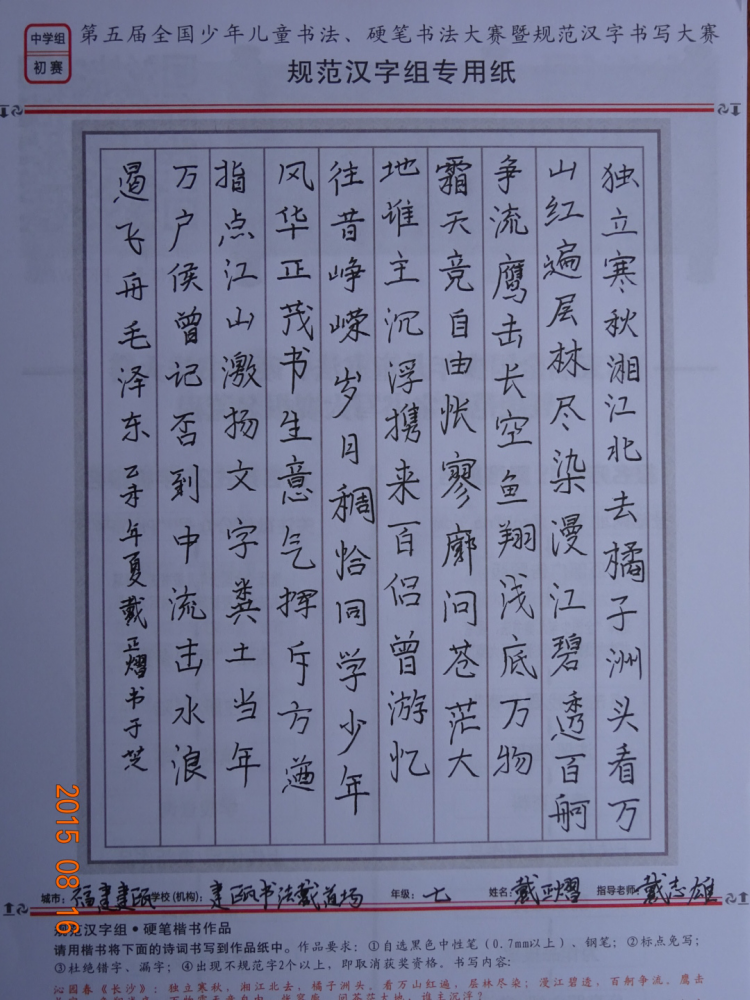 中学组
初赛
第五届全国少年儿童书法、硬笔书法大赛暨规范汉字书写大赛
规范汉字组专用纸
独立寒秋湘江北去橘子洲头看万
山红遍层林尽染漫江碧透百舸
争流鹰击长空鱼翔浅底万物
霜天竞自由怅寥廓问苍茫大
地谁主沉浮携来百侣曾游忆
往昔峥嵘岁月稠恰同学少年
风华正茂书生意气挥斥方遒
指点江山激扬文字粪土当年
万户侯曾记否到中流击水浪
遏飞舟毛泽东乙未年夏戴正熠书于芝
2015 08 16
城市:福建建瓯 学校(机构):建瓯书法戴道场 年级:七 姓名:戴正熠 指导老师:戴志雄
规范汉字组·硬笔楷书作品
请用楷书将下面的诗词书写到作品纸中。作品要求:①自选黑色中性笔(0.7mm以上)、钢笔;②标点免写;
③杜绝错字、漏字;④出现不规范字2个以上,即取消获奖资格。书写内容:
沁园春《长沙》:独立寒秋,湘江北去,橘子洲头。看万山红遍,层林尽染;漫江碧透,百舸争流。鹰击